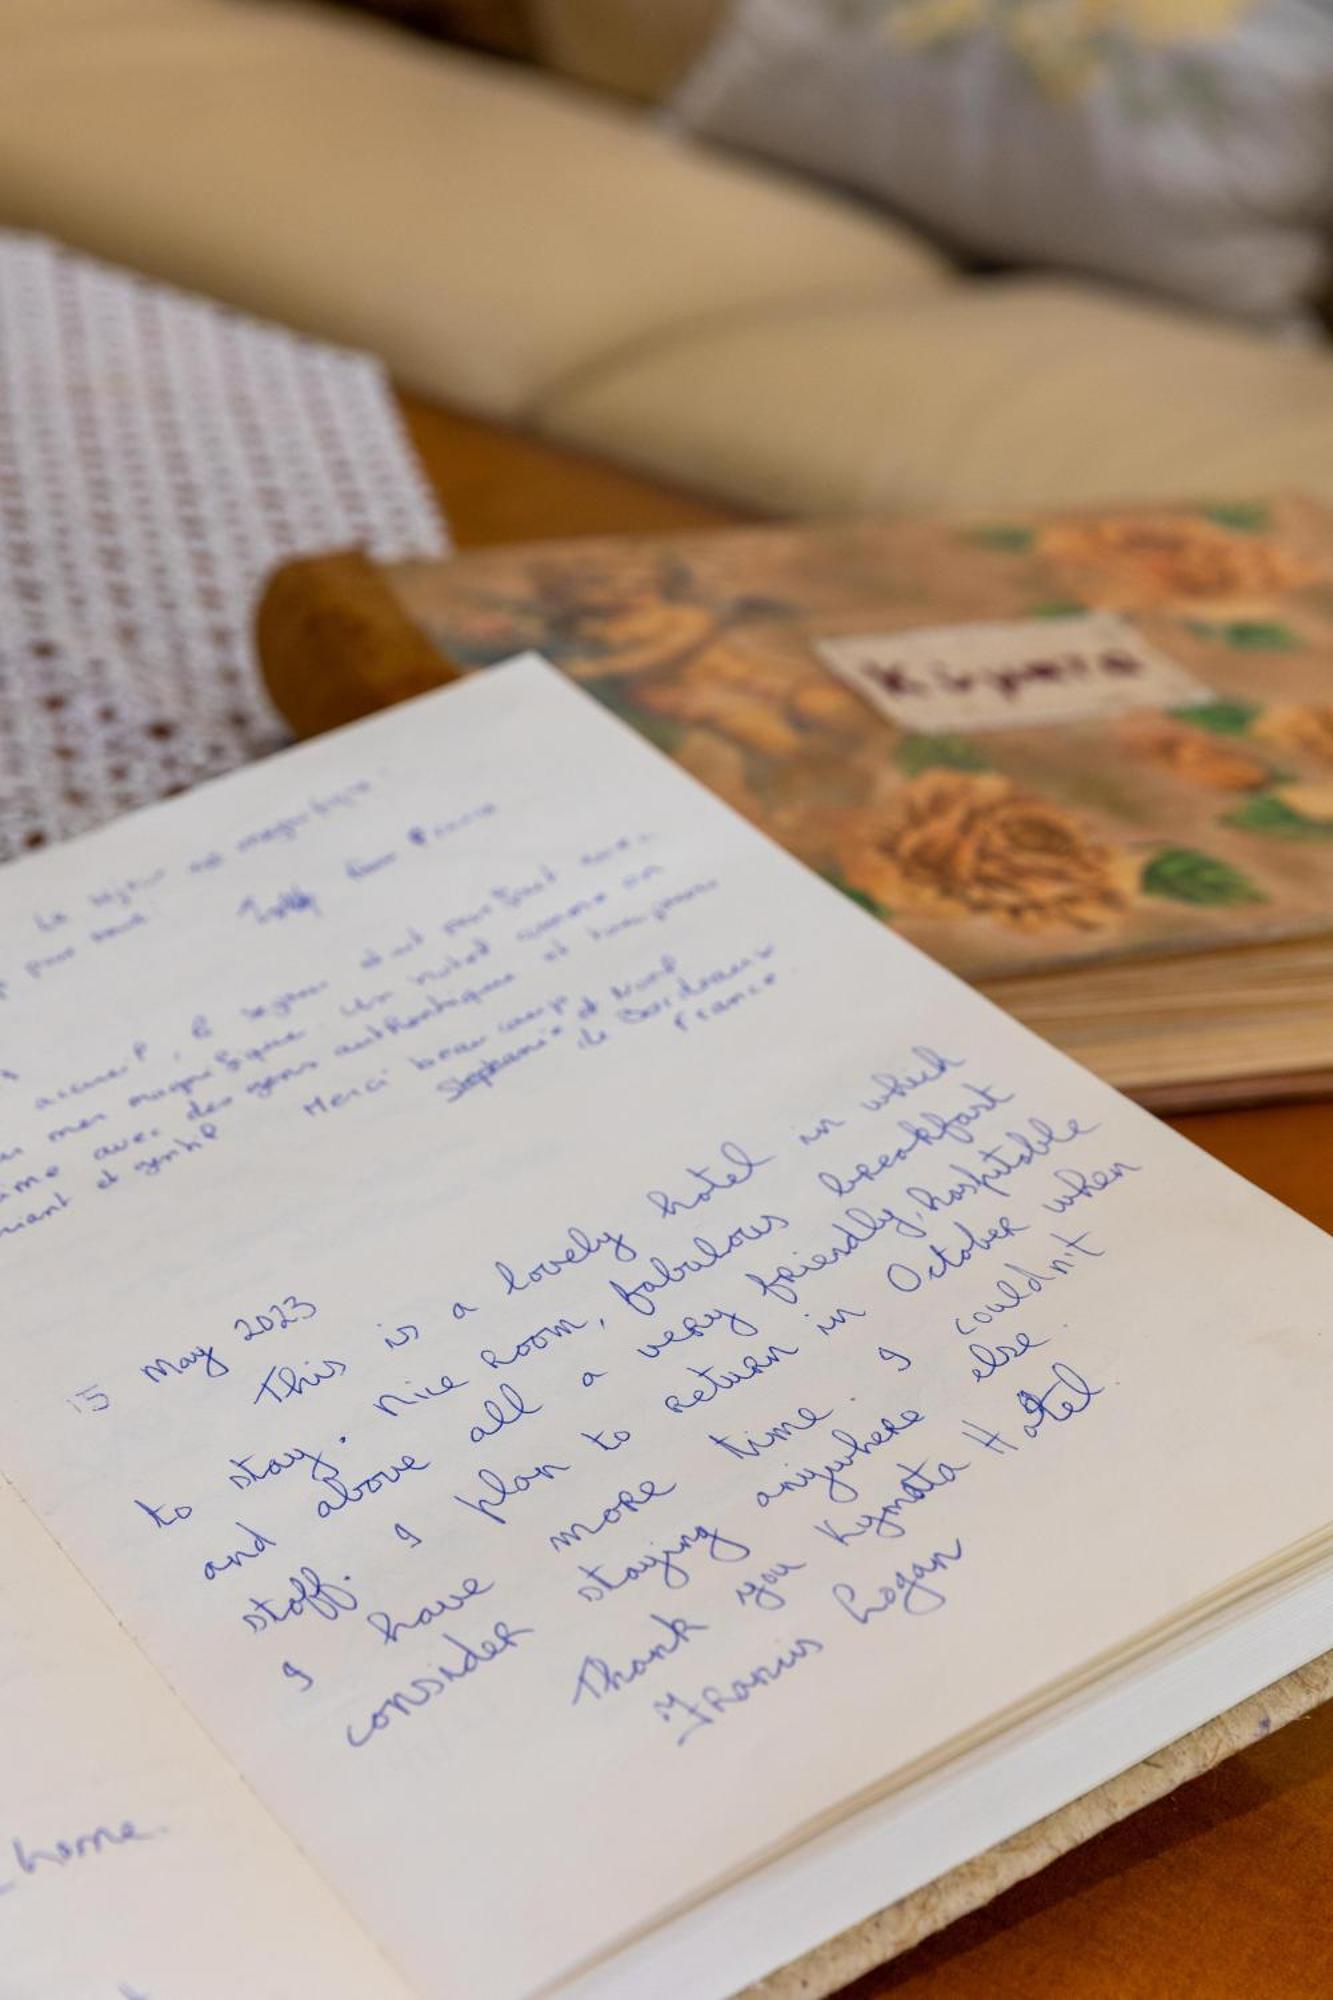 Le séjour est magnifique
pour nous
France
accueil, le séjour était parfait avec
magnifique. Un hotel comme on
aime avec des gens authentiques et toujours
riant et gentil Merci beaucoup
Stephanie et
de Bordeaux
France
15 May 2023
This is a lovely hotel in which
to stay. Nice room, fabulous breakfast
and above all a very friendly, hospitable
staff. I plan to return in October when
I have more time. I couldn't
consider staying anywhere else.
Thank you Kymata Hotel.
Francis Logan
home.
Κύματα